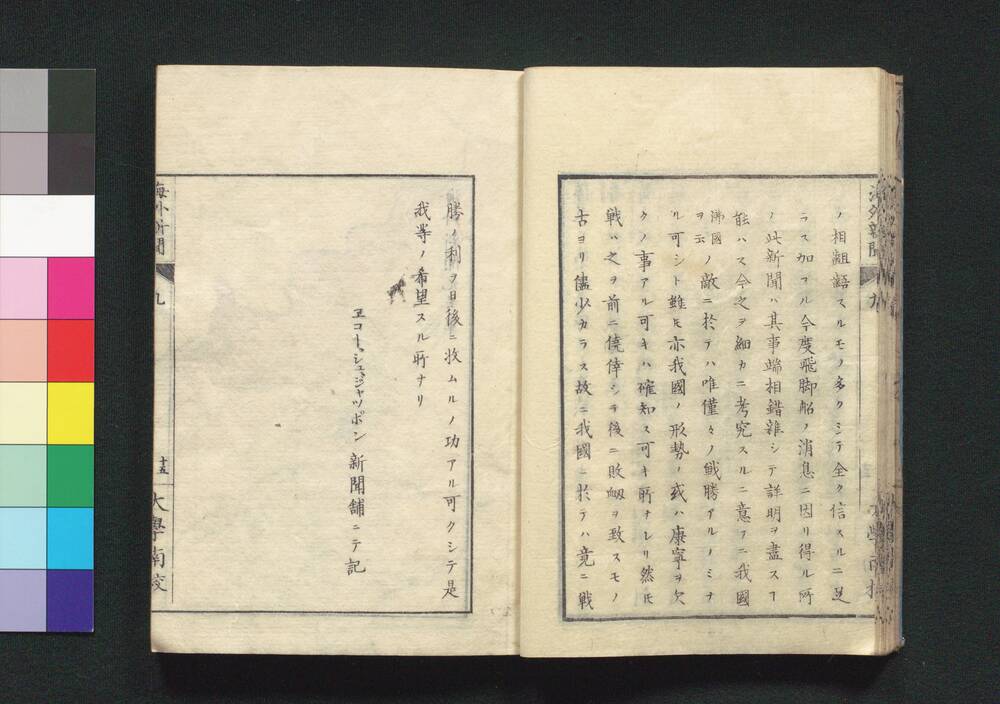 ノ相齟齬スルモノ多クシテ全ク信スルニ足
ラス加フル今度飛脚船ノ消息ニ因リ得ル所
ノ此新聞ハ其事端相錯雜シテ詳明ヲ盡スヿ
能ハス今之ヲ細カニ考究スルニ意フニ我國
佛國ヲ云ノ敵ニ於テハ唯僅々ノ戰勝アルノミナ
ル可シト雖𪜈亦我國ノ形勢ノ或ハ康寧ヲ欠
クノ事アル可キハ確知ス可キ所ナレリ然𪜈
戰ハ之ヲ前ニ僥倖シテ後ニ敗衂ヲ致スモノ
古ヨリ儘少カラス故ニ我國ニ於テハ竟ニ戰
海外新聞
九
勝ノ利ヲ日後ニ收ムルノ功アル可クシテ是
我等ノ希望スル所ナリ
ヱコー、シュ、ジャッポン 新聞舗ニテ 記
海外新聞
九
十五
大學南校